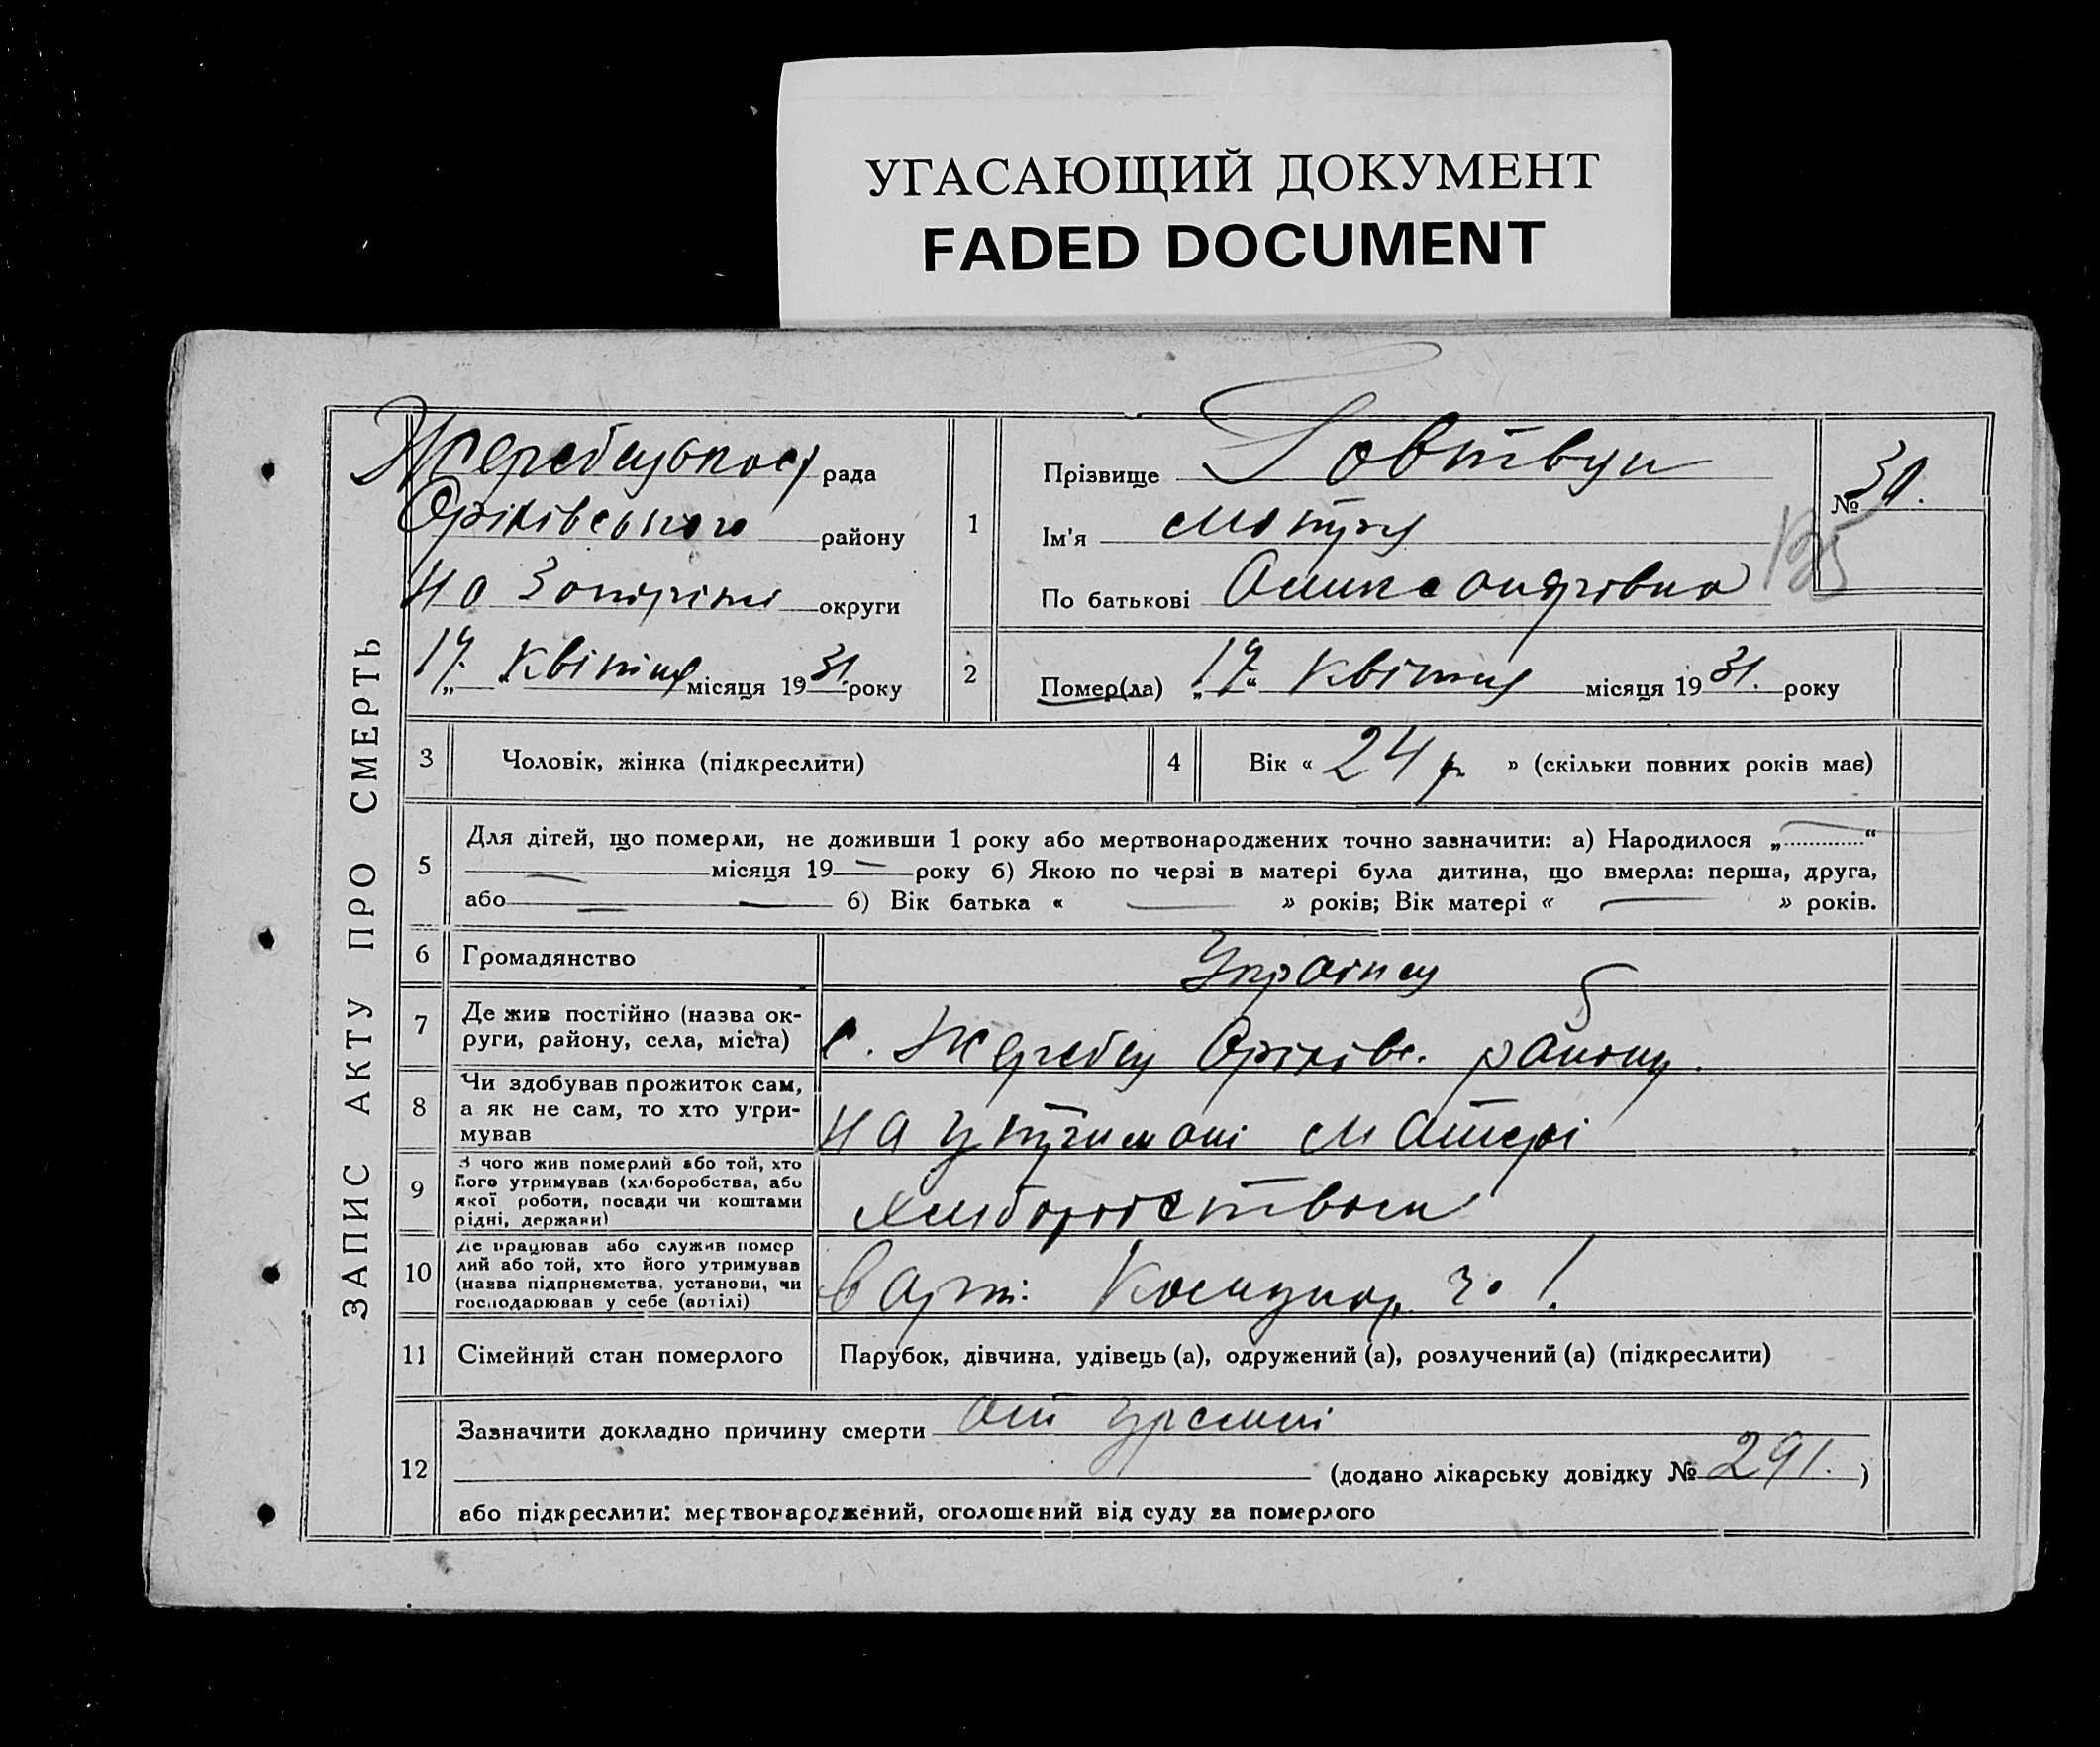 УГАСАЮЩИЙ ДОКУМЕНТ
FADED DOCUMENT
ЗАПИС АКТУ ПРО СМЕРТЬ
рада
Оріхівського району
на Запоріжі округи
„19“ Квітня місяця 1931. року
1
Прізвище Говтвун
Ім'я Мотря
По батькові Олександрівна
№ 30.
2
Помер(ла) „19“ Квітня місяця 1931. року
3 Чоловік, жінка (підкреслити)
4 Вік « 24 р » (скільки повних років має)
5
Для дітей, що померли, не доживши 1 року або мертвонароджених точно зазначити: а) Народилося „ “
— місяця 19— року б) Якою по черзі в матері була дитина, що вмерла: перша, друга,
або — — б) Вік батька « — » років; Вік матері « — » років.
6 Громадянство
7 Де жив постійно (назва ок-
руги, району, села, міста) с. Жеребец Оріхівс. району.
8 Чи здобував прожиток сам,
а як не сам, то хто утри-
мував на утримані матері
9 З чого жив померлий або той, хто
його утримував (хліборобства, або
якої роботи, посади чи коштами
рідні, держави)
10 Де працював або служив помер
лий або той, хто його утримував
(назва підприємства, установи, чи
господарював у себе (артілі) в арт:
11 Сімейний стан померлого Парубок, дівчина, удівець (а), одружений (а), розлучений (а) (підкреслити)
12
Зазначити докладно причину смерти от уремії
(додано лікарську довідку № 291. )
або підкреслити: мертвонароджений, оголошений від суду за померлого